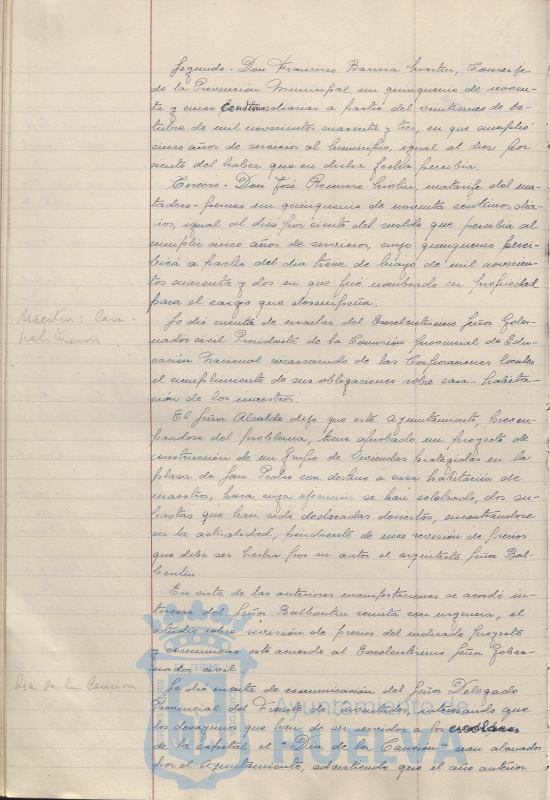 Segundo.- Don Francisco Barrera Martin, Conserje
de la Prevención Municipal, un quinquenio de noven-
ta y cinco centimos diarios a partir del veintiuno de Oc-
tubre de mil novecientos cuarenta y tres, en que cumplió
cinco años de servicio al municipio, igual al diez por
ciento del haber que en dicha fecha percibía.
Tercero.- Don José Romero Martin, matarife del ma-
tadero un quinquenio de noventa centimos dia-
rios, igual al diez por ciento del sueldo que percibia al
cumplir cinco años de servicios, cuyo quinquenio perci-
birá a partir del dia trece de Mayo de mil novecien-
tos cuarenta y dos en que fué nombrado en propiedad
para el cargo que desempeña.
Maestros: Casa-
habitacion
Se dió cuenta de circular del Excelentísimo Señor Gober-
nador civil Presidente de la Comisión provincial de Edu-
cación Nacional encareciendo de las Corporaciones locales
el cumplimiento de sus obligaciones sobre casa-habita-
ción de los maestros.
El Señor Alcalde dijo que este Ayuntamiento, preocu-
pandose del problema, tiene aprobado un proyecto de
construcción de un Grupo de Viviendas protegidas en la
plaza de San Pedro con destino a casa habitación de
maestros, para cuya ejecución se han celebrado, dos su-
bastas que han sido declaradas desiertas, encontrandose
en la actualidad, pendiente de una revisión de precios
que debe ser hecha por su autor el arquitecto Señor Bal-
bontin.
En vista de las anteriores manifestaciones se acordó in-
teresar del Señor Balbontin remita con urgencia, el
estudio sobre revisión de precios del indicado proyecto
y comunicar este acuerdo al Excelentísimo Señor Gober-
nador civil
Dia de la Cancion
Se dió cuenta de comunicación del Señor Delegado
Provincial del Frente de Juventudes, interesando que
los desayunos que han de ser servidos a los escolares
de la capital el "Dia de la Canción" sean abonados
por el Ayuntamiento, advirtiendo que el año anterior
Ayuntamiento de
HUELVA